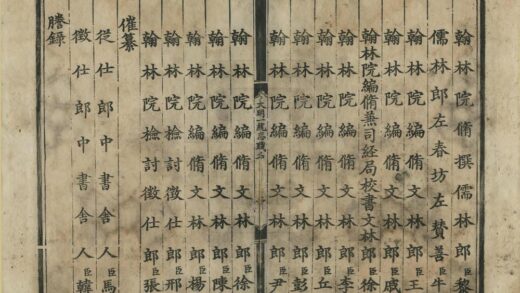 翰林院脩撰儒林郎臣黎
儒林郎左春坊左贊善臣牛
翰林院編脩文林郎臣王
翰林院編脩文林郎臣戚
翰林院編脩兼司經局校書文林郎臣徐
翰林院編脩文林郎臣李
翰林院編脩文林郎臣丘
翰林院編脩文林郎臣彭
翰林院編脩文林郎臣尹
大明一統志職名
翰林院編脩文林郎臣徐
翰林院編脩文林郎臣陳
翰林院編脩文林郎臣楊
翰林院撿討徵仕郎臣邢
翰林院撿討徵仕郎臣張
催纂
從仕郎中書舍人臣馬
徵仕郎中書舍人臣韓
謄錄